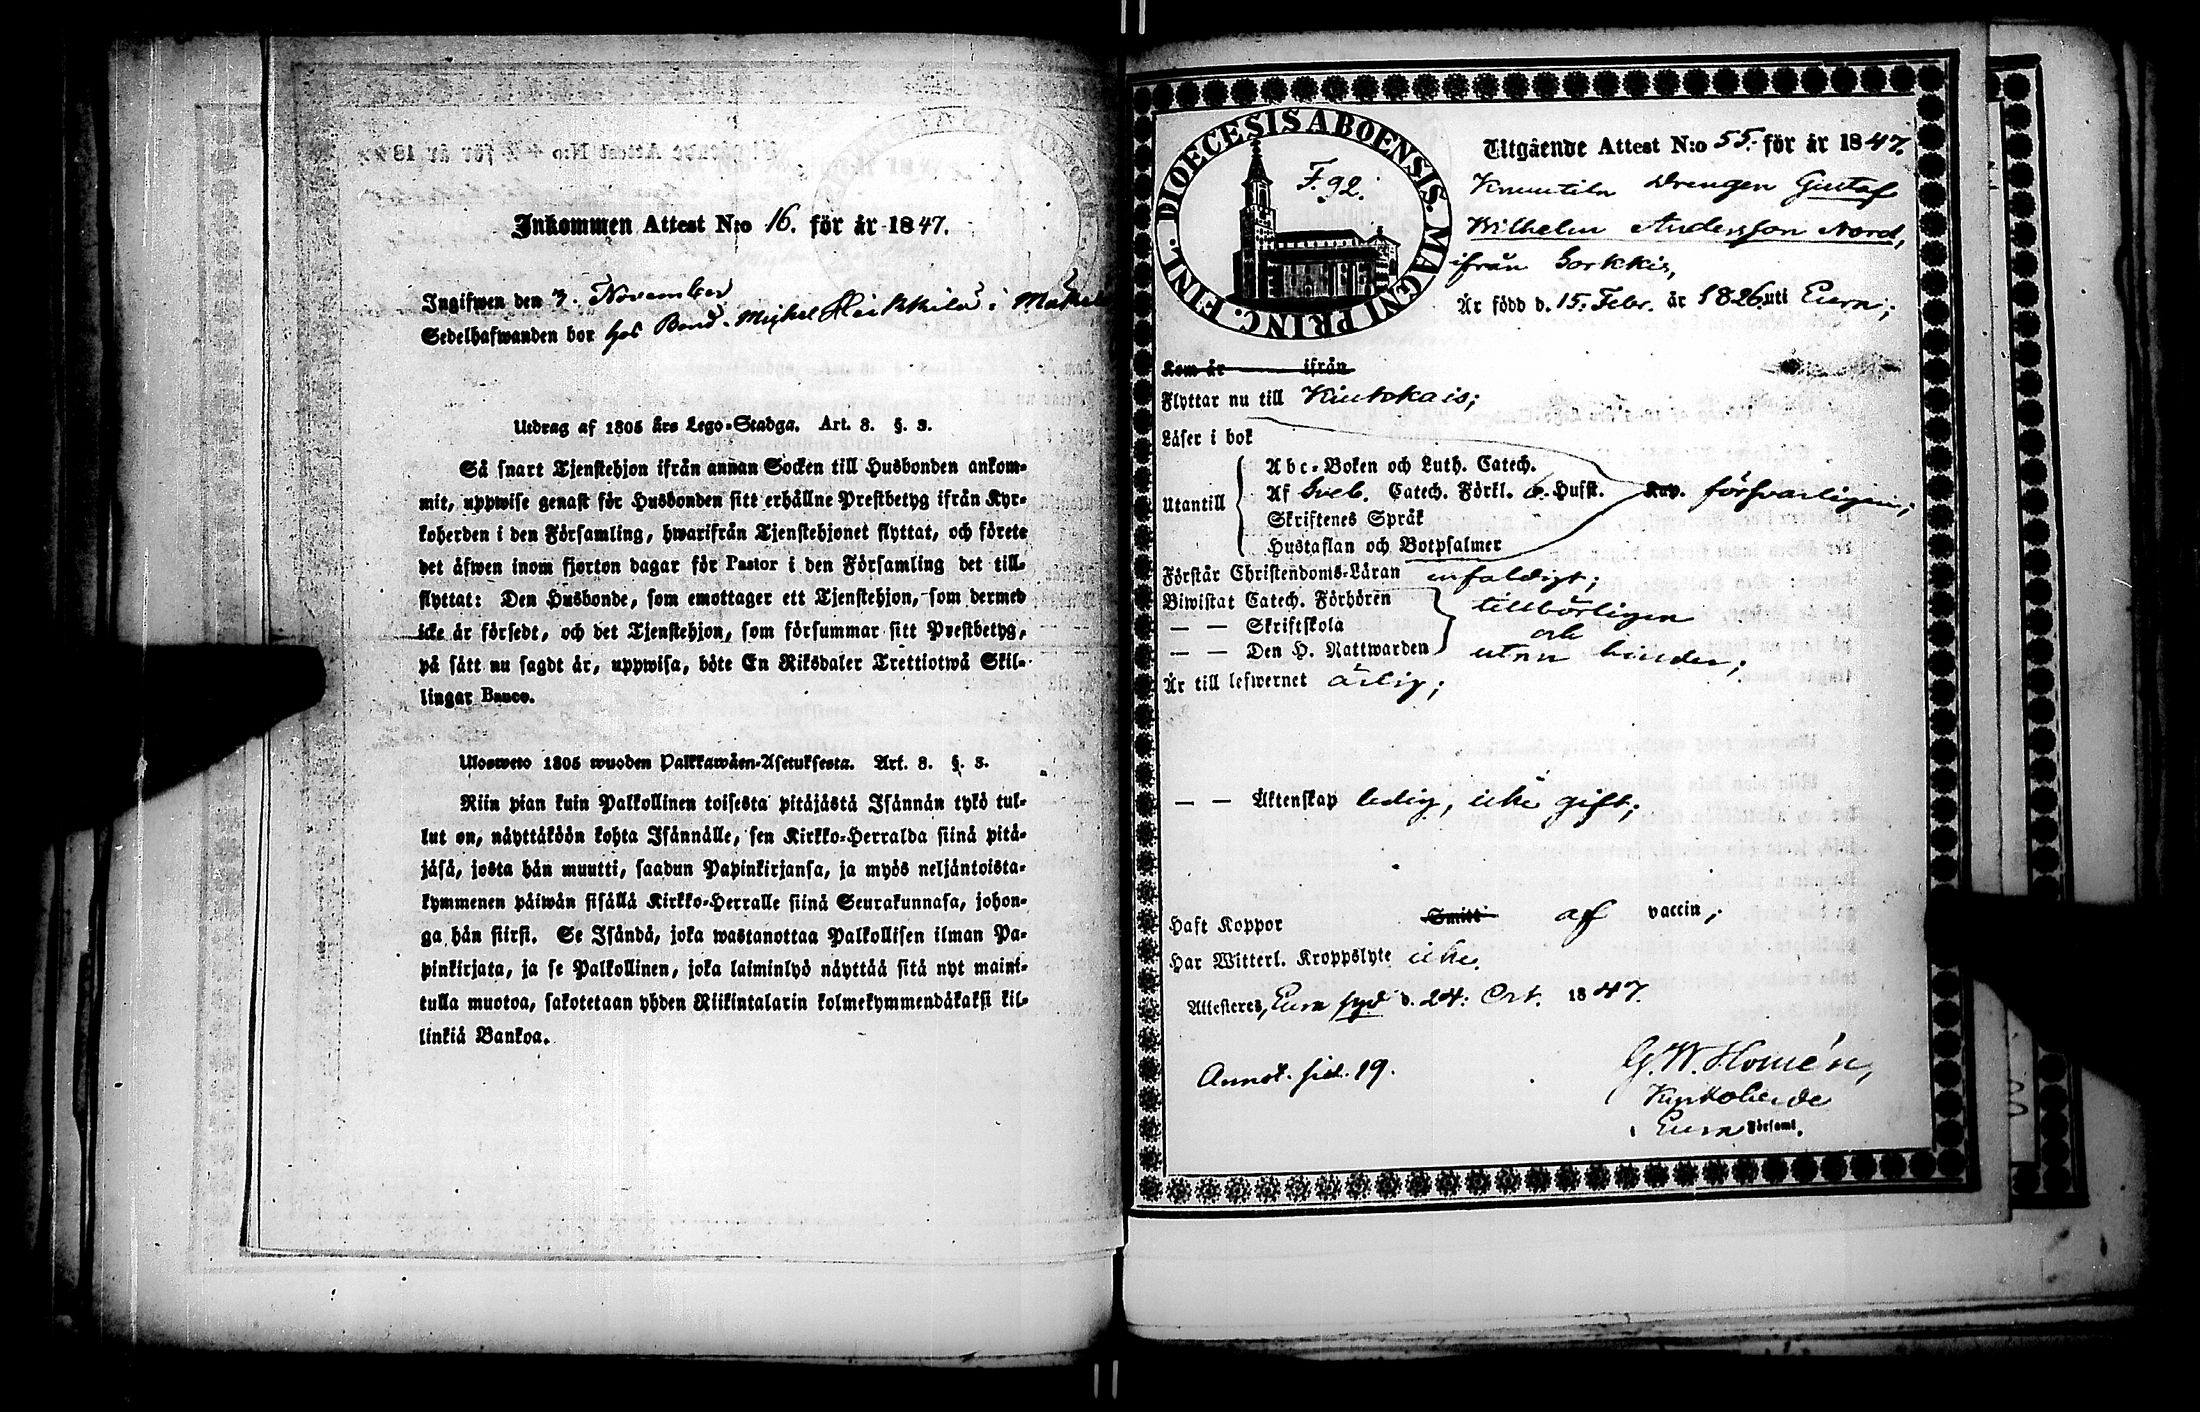 Inkommen Attest N:o 16. för år 1847.
Ingifwen den 7. November
Sedelhafwanden bor hos Bond. Mickel Heikkilä i
Utdrag af 1805 års Lego-Stadga. Art. 8. §. 3.
Så snart Tjenstehjon ifrån annan Socken till Husbonden ankom-
mit, uppwise genast för Husbonden sitt erhållne Prestbetyg ifrån Kyr-
koherden i den Församling, hwarifrån Tjenstehjonet flyttat, och förete
det äfwen inom fjorton dagar för Pastor i den Församling det till-
flyttat: Den Husbonde, som emottager ett Tjenstehjon, som dermed
icke är försedt, och det Tjenstehjon, som försummar sitt Prestbetyg,
på sätt nu sagdt är, uppwisa, böte En Riksdaler Trettiotwå Skil-
lingar Banco.
Ulosweto 1805 wuoden Palkkawäen-Asetuksesta. Art. 8. §. 3.
Niin pian kuin Palkollinen toisesta pitäjästä Isännän tykö tul-
lut on, näyttäköön kohta Isännälle, sen Kirkko-Herralda siinä pitä-
jäsä, josta hän muutti, saadun Papinkirjansa, ja myös neljäntoista-
kymmenen päiwän sisällä Kirkko-Herralle siinä Seurakunnasa, johon-
ga hän siirsi. Se Isändä, joka wastanottaa Palkollisen ilman Pa-
pinkirjata, ja se Palkollinen, joka laiminlyö näyttää sitä nyt maini-
tulla muotoa, sakotetaan yhden Riikintalarin kolmekymmendäkaksi kil-
linkiä Bankoa.
DIOECESIS ABOENSIS. MAGNI PRINC. FINL.
F. 92.
Utgående Attest N:o 55. för år 1847.
Drengen Gustaf
Wilhelm Andersson Nord,
ifrån Sorkkis,
Är född d. 15. Febr. år 1826 uti Eura;
Kom år ifrån
Flyttar nu till Kiukais;
Läser i bok
Abc-Boken och Luth. Catech.
Utantill Af Sveb. Catech. Förkl. 6. Hufst. Kap. försvarligen;
Skriftenes Språk
Hustaflan och Botpsalmer
Förstår Christendoms-Läran enfaldigt;
Biwistat Catech. Förhören tillbörligen
— — Skriftskola och
— — Den H. Nattwarden utan hinder;
Är till lefwernet ärlig;
— — Äktenskap ledig, icke gift;
Haft Koppor Smitt af vaccin;
Har Witterl. Kroppslyte icke.
Attesteres, Eura d. 24: Oct. 1847.
Annot. sid. 19.
G. W. Homén,
Kyrkoherde
i Eura Församl.